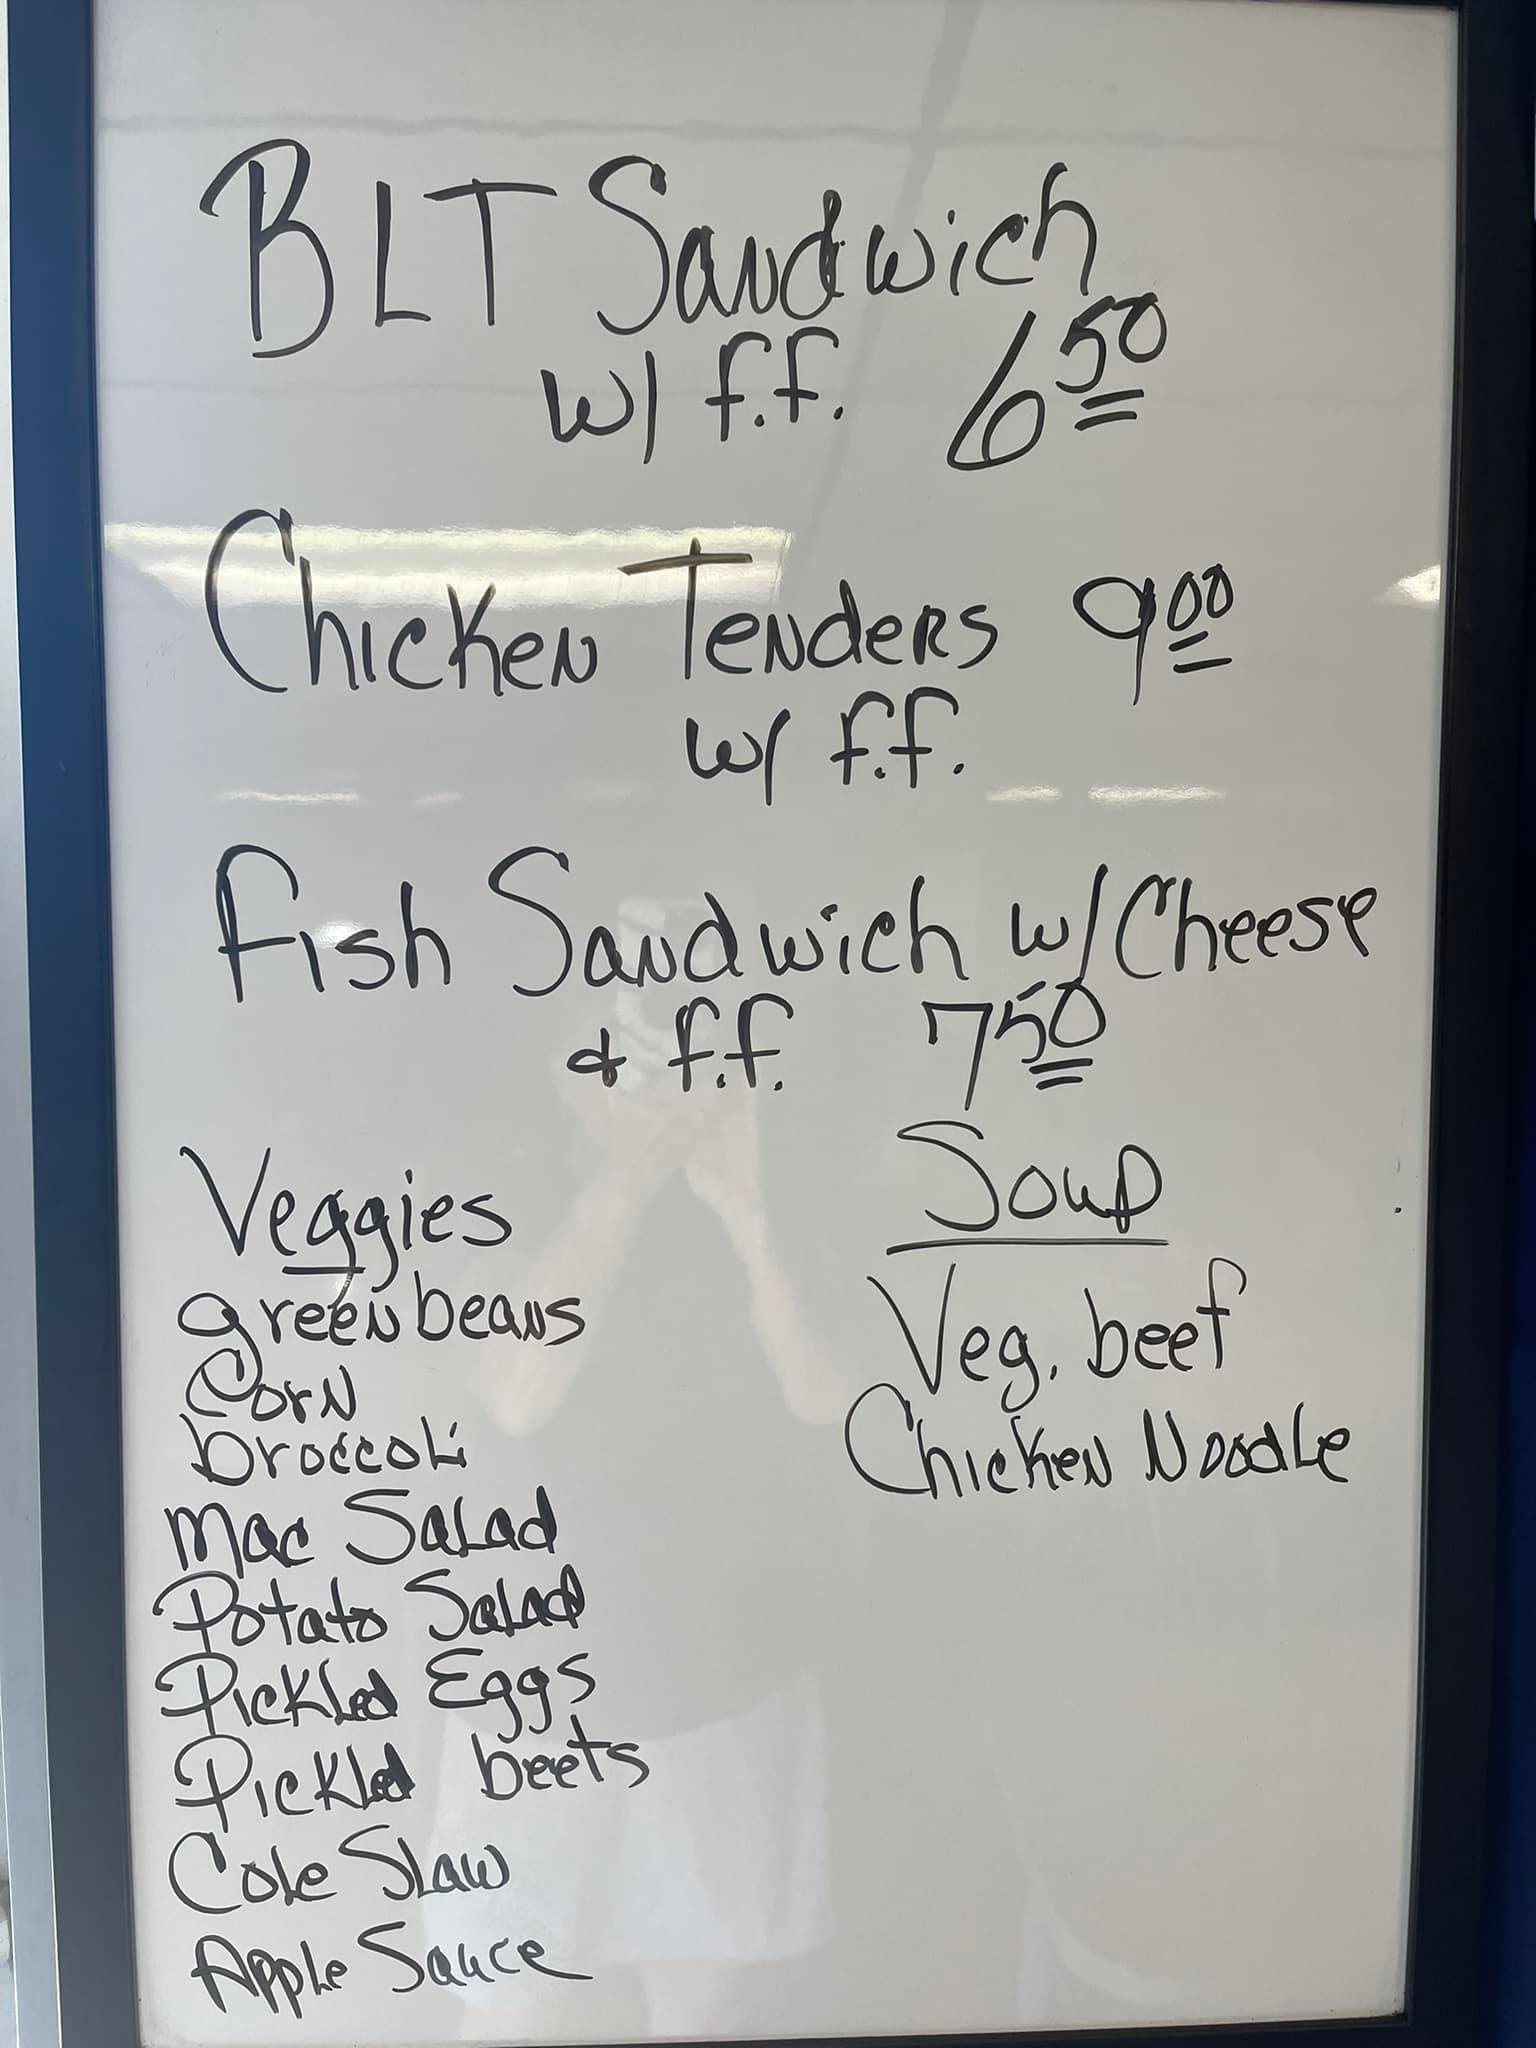 BLT Sandwich
w/ f.f. 6 50
Chicken Tenders 9 00
w/ f.f.
Fish Sandwich w/ Cheese
& f.f. 7 50
Veggies
green beans
Corn
broccoli
Mac Salad
Potato Salad
Pickled Eggs
Pickled beets
Cole Slaw
Apple Sauce
Soup
Veg. beef
Chicken Noodle